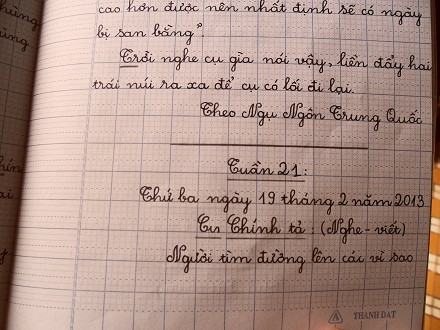 cao hơn được nên nhất định sẽ có ngày
bị san bằng".
Trời nghe cụ già nói vậy, liền đẩy hai
trái núi ra xa để cụ có lối đi lại.
Theo Ngụ Ngôn Trung Quốc
Tuần 21:
Thứ ba ngày 19 tháng 2 năm 2013
Chính tả: (Nghe - viết)
Người tìm đường lên các vì sao
THANH DAT